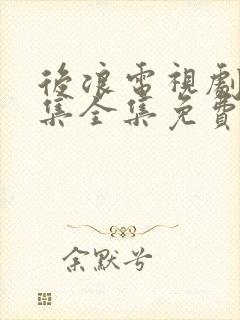 後浪電視劇
集全集免費
余默兮